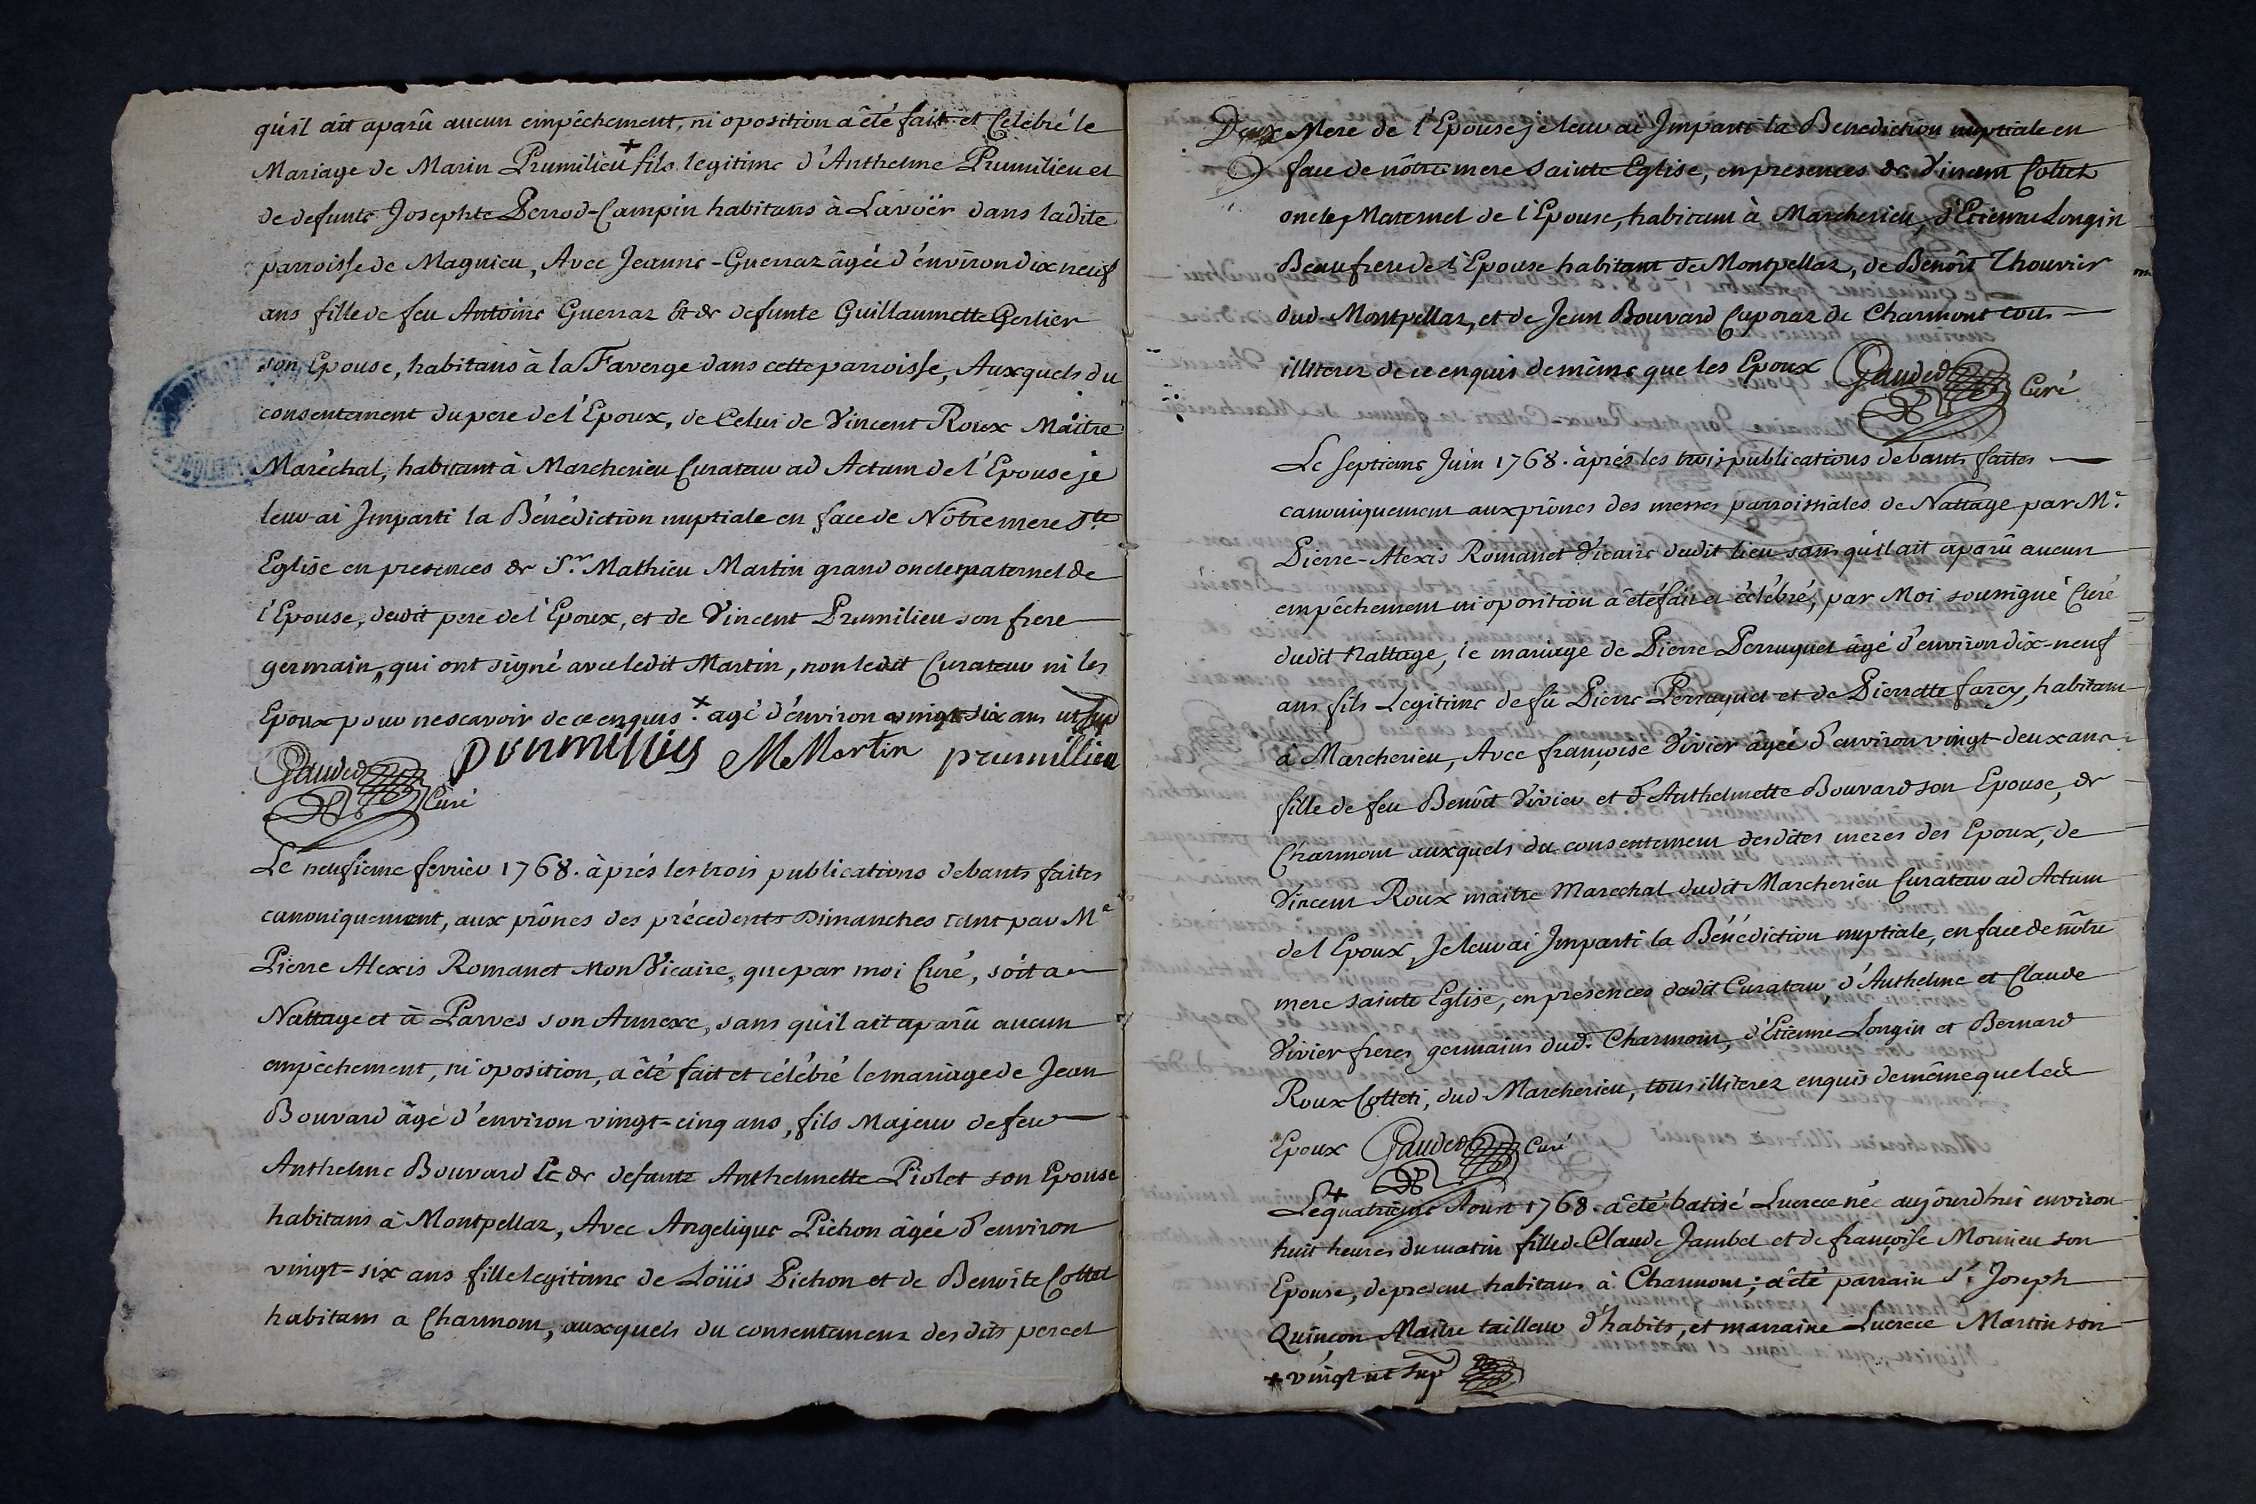 qu'il ait aparû aucun empêchement, ni oposition a êté fait et Célébré le
Mariage de Marin Prumilieu + fils legitime d'Anthelme Prumilieu et
de defunte Josephte Perrod-Campin habitans à Lavoër dans ladite
parroisse de Magnieu, Avec Jeanne-Guerraz âgée d'environ dix neuf
ans fille de feu Antoine Guerraz et de defunte Guillaumette Gerlier
son Epouse, habitans à la Faverge dans cette parroisse, Auxquels du
consentement du pere de l'Epoux, de Celui de Vincent Roux Maître
Maréchal, habitant à Marcherieu Curateur ad Actum de l'Epouse je
leur ai Imparti la Bénédiction nuptiale en face de Nôtre mere Ste
Eglise en presences de Sr. Mathieu Martin grand oncle paternel de
l'Epouse, dudit pere de l'Epoux, et de Vincent Prumilieu son frere
germain, qui ont signé avec ledit Martin, non ledit Curateur ni les
Epoux pour ne scavoir de ce enquis. + agé d'environ vingt-six ans ut sup
prumilieu M Martin prumillieu
Gauded Curé
Le neufieme fevrier 1768. àprés les trois publications de bants faites
canoniquement, aux prônes des précedents Dimanches tant par Me
Pierre Alexis Romanet Mon Vicaire, que par moi Curé, soit a
Nattage et à Parves son Annexe, sans qu'il ait aparû aucun
empêchement, ni oposition, a êté fait et célébré le mariage de Jean
Bouvard âgé d'environ vingt-cinq ans, fils Majeur de feu
Anthelme Bouvard et de defunte Anthelmette Piolet son Epouse
habitans à Montpellaz, Avec Angelique Pichon âgée d'environ
vingt-six ans fille legitime de Loüis Pichon et de Benoîte Collet
habitans a Charmont, auxquels du consentement des dits pere et
Deux Mere de l'Epouse je leur ai Imparti la Benediction nuptiale en
face de nôtre mere Sainte Eglise, en presences de Vincent Collet
oncle Maternel de l'Epouse, habitant à Marcherieu, d'Etienne Longin
Beaufrere de l'Epouse habitant de Montpellaz, de Benoît Thouvier
dud. Montpellaz, et de Jean Bouvard Caporaz de Charmont tous
illiterez de ce enquis de même que les Epoux Gauded Curé
Le septieme Juin 1768. àprés les trois publications de bants faites
canoniquement aux prônes des messes parroissiales de Nattage par Me.
Pierre-Alexis Romanet Vicaire dudit lieu sans qu'il ait aparû aucun
empêchement ni oposition a êté fait et célébré, par Moi soussigné Curé
dudit Nattage, le mariage de Pierre Perruquet âgé d'environ dix-neuf
ans fils Legitime de fû Pierre Perruquet et de Pierrette farcy, habitant
à Marcherieu, Avec françoise Vivier âgée d'environ vingt-deux ans
fille de feu Benoît Vivier et d'Anthelmette Bouvard son Epouse, de
Charmont auxquels du consentement desdites meres des Epoux, de
Vincent Roux maitre Marechal dudit Marcherieu Curateur ad Actum
de l'Epoux, Je leur ai Imparti la Bénédiction nuptiale, en face de nôtre
mere sainte Eglise, en presences dudit Curateur, d'Anthelme et Claude
Vivier freres germains dud. Charmont, d'Etienne Longin et Bernard
Roux Colleti, dud. Marcherieu, tous illiterez enquis de même que les
Epoux Gauded Curé
Le + quatrieme Aoust 1768. a êté batisé Lucrece née aujourdhui environ
huit heures du matin fille de Claude Jambet et de françoise Monnieu son
Epouse, de present habitans à Charmont; a êté parrain Sr. Joseph
Quinçon Maitre tailleur d'habits, et marraine Lucrece Martin son
+ vingt ut sup